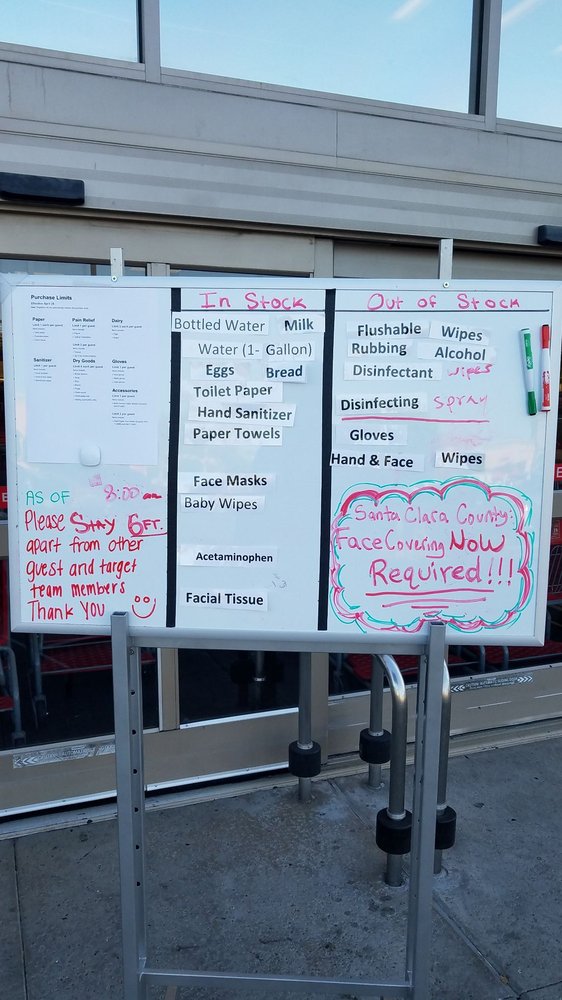 Purchase Limits
Paper
Pain Relief
Dairy
Sanitizer
Dry Goods
Gloves
Accessories
AS OF 8:00 am
Please Stay 6FT.
apart from other
guest and target
team members
Thank You
In Stock
Bottled Water Milk
Water (1- Gallon)
Eggs Bread
Toilet Paper
Hand Sanitizer
Paper Towels
Face Masks
Baby Wipes
Acetaminophen
Facial Tissue
Out of Stock
Flushable Wipes
Rubbing Alcohol
Disinfectant wipes
Disinfecting spray
Gloves
Hand & Face Wipes
Santa Clara County:
Face Covering NOW
Required!!!